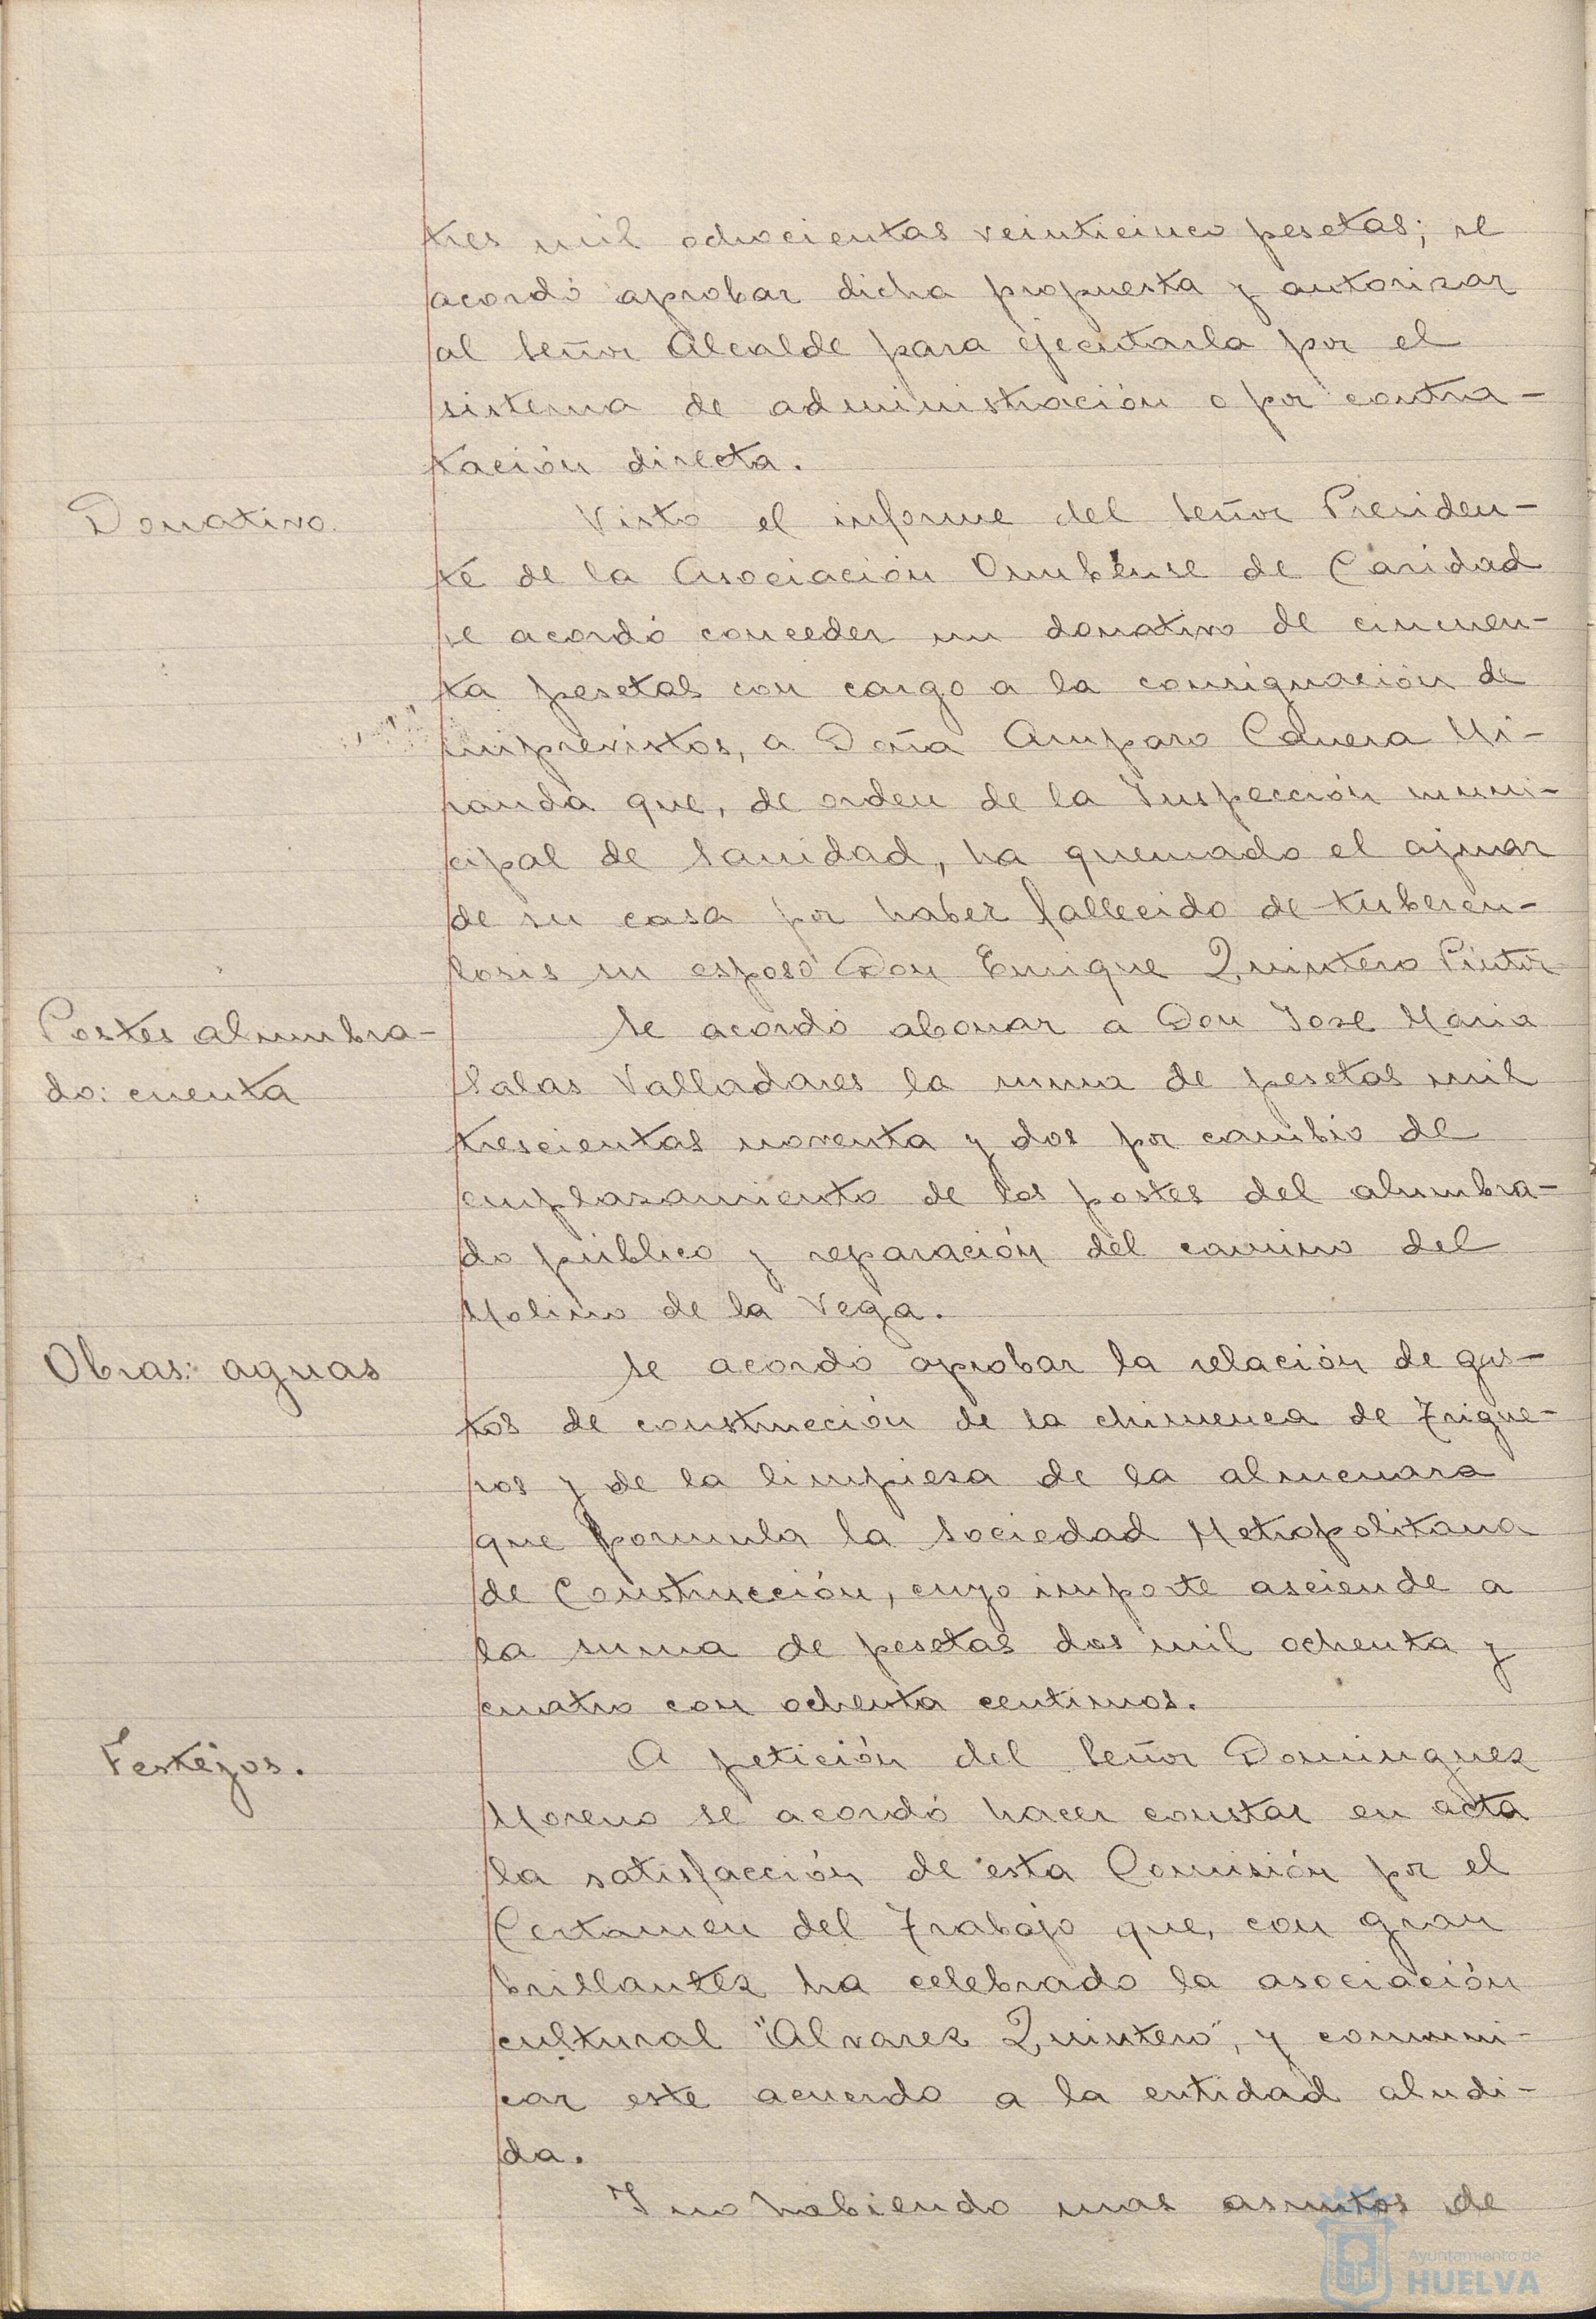 tres mil ochocientas veinticinco pesetas; se
acordó aprobar dicha propuesta y autorizar
al Señor Alcalde para ejecutarla por el
sistema de administración o por contra-
tación directa.
Donativo.
Visto el informe del Señor Presiden-
te de la Asociación Onubense de Caridad
se acordó conceder un donativo de cincuen-
ta pesetas con cargo a la consignación de
imprevistos, a Doña Amparo Mi-
randa que, de orden de la Inspección muni-
cipal de Sanidad, ha quemado el ajuar
de su casa por haber fallecido de tubercu-
losis su esposo Don Enrique Quintero Pintor
Postes alumbra-
do: cuenta
Se acordó abonar a Don José Maria
Salas Valladares la suma de pesetas mil
trescientas noventa y dos por cambio de
emplazamiento de los postes del alumbra-
do público y reparación del camino del
Molino de la Vega.
Obras: aguas
Se acordó aprobar la relación de gas-
tos de construcción de la chimenea de Trigue-
ros y de la limpieza de la almenara
que formula la Sociedad Metropolitana
de Construcción, cuyo importe asciende a
la suma de pesetas dos mil ochenta y
cuatro con ochenta centimos.
Festejos.
A petición del Señor Dominguez
Moreno se acordó hacer constar en acta
la satisfacción de esta Comisión por el
Certamen del Trabajo que, con gran
brillantez ha celebrado la asociación
cultural "Alvarez Quintero", y comuni-
car este acuerdo a la entidad aludi-
da.
Y no habiendo mas asuntos de
Ayuntamiento de
HUELVA